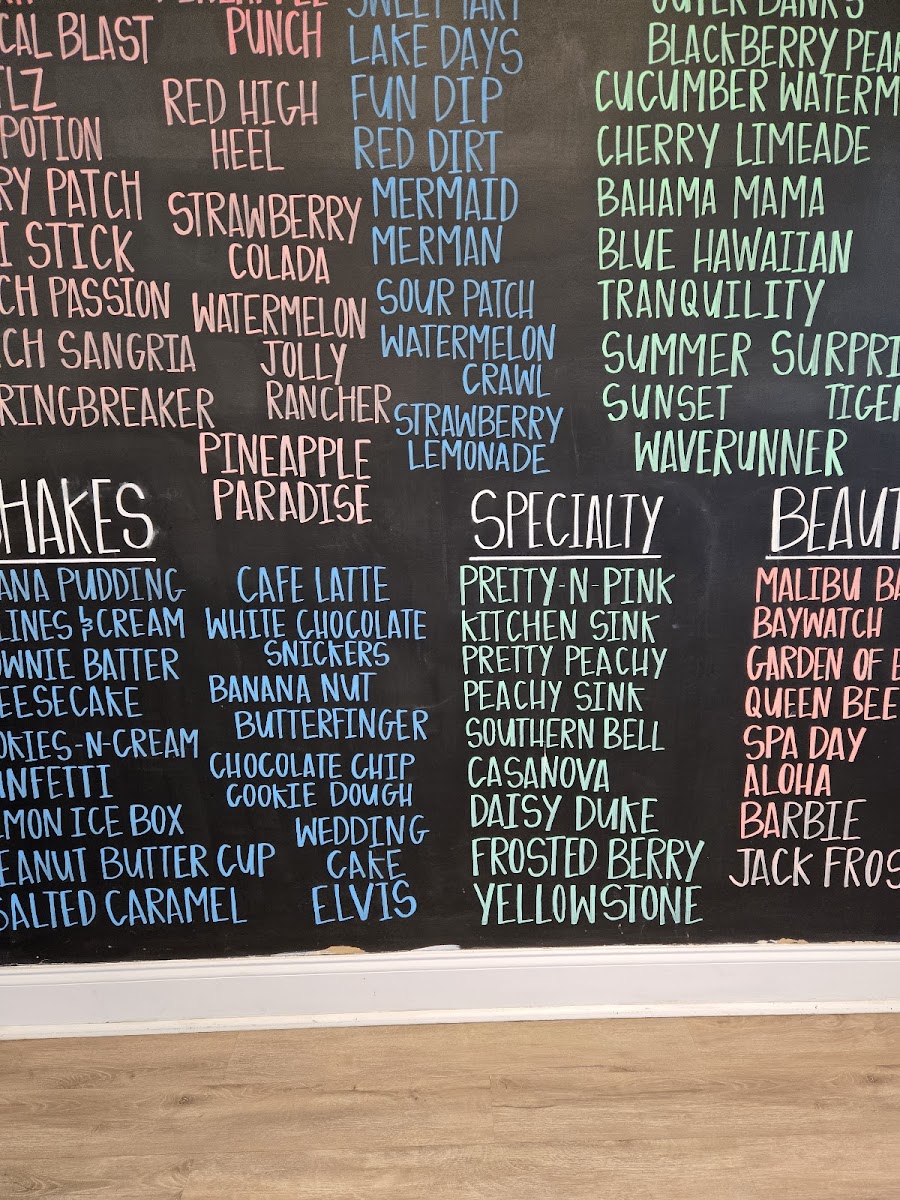 CAL BLAST
TLZ
POTION
RY PATCH
I STICK
CH PASSION
CH SANGRIA
RINGBREAKER
PINEAPPLE
PUNCH
RED HIGH
HEEL
STRAWBERRY
COLADA
WATERMELON
JOLLY
RANCHER
PINEAPPLE
PARADISE
SWEET TART
LAKE DAYS
FUN DIP
RED DIRT
MERMAID
MERMAN
SOUR PATCH
WATERMELON
CRAWL
STRAWBERRY
LEMONADE
OUTER BANKS
BLACKBERRY PEAR
CUCUMBER WATERM
CHERRY LIMEADE
BAHAMA MAMA
BLUE HAWAIIAN
TRANQUILITY
SUMMER SURPRI
SUNSET TIGER
WAVERUNNER
SHAKES
ANA PUDDING
LINES & CREAM
OWNIE BATTER
EESECAKE
OKIES-N-CREAM
NFETTI
MON ICE BOX
EANUT BUTTER CUP
SALTED CARAMEL
CAFE LATTE
WHITE CHOCOLATE
SNICKERS
BANANA NUT
BUTTERFINGER
CHOCOLATE CHIP
COOKIE DOUGH
WEDDING
CAKE
ELVIS
SPECIALTY
PRETTY-N-PINK
KITCHEN SINK
PRETTY PEACHY
PEACHY SINK
SOUTHERN BELL
CASANOVA
DAISY DUKE
FROSTED BERRY
YELLOWSTONE
BEAUT
MALIBU BA
BAYWATCH
GARDEN OF E
QUEEN BEE
SPA DAY
ALOHA
BARBIE
JACK FROS